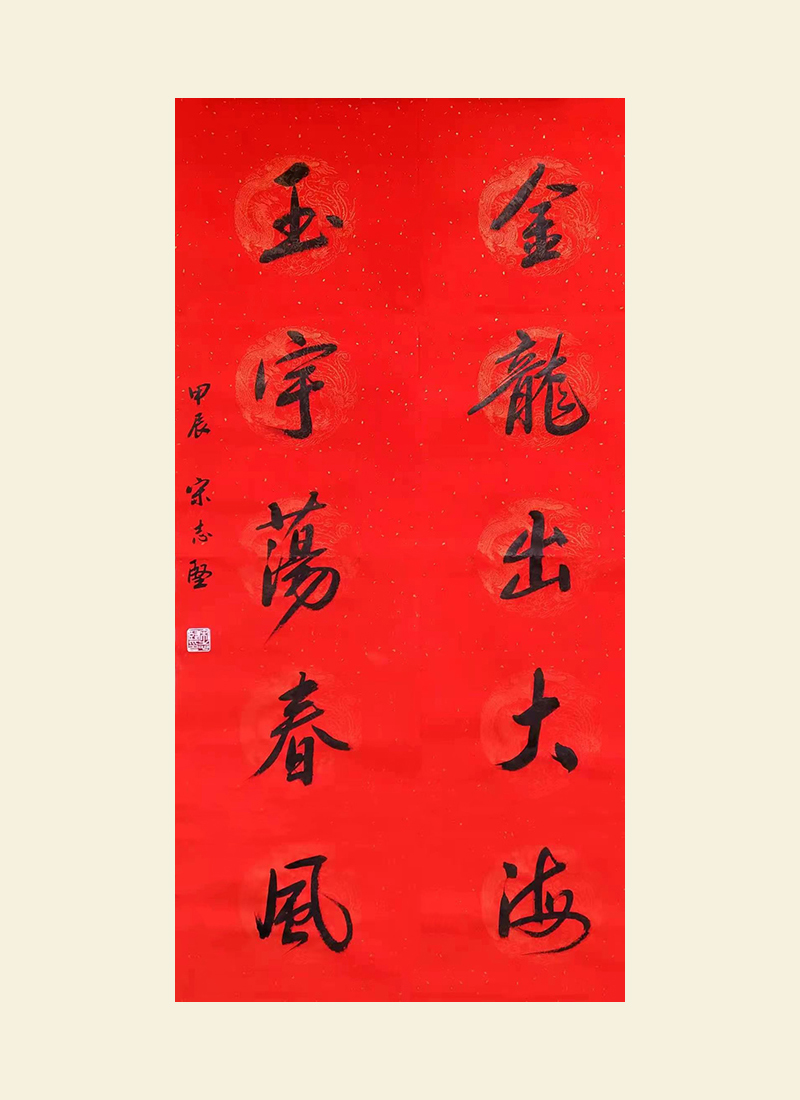 金龍出大海
玉宇蕩春風
甲辰 宋志堅